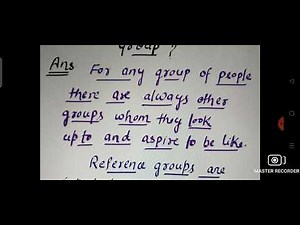 group ?
Ans For any group of people
there are always other
groups whom they look
up to and aspire to be like.
Reference groups are
MASTER RECORDER